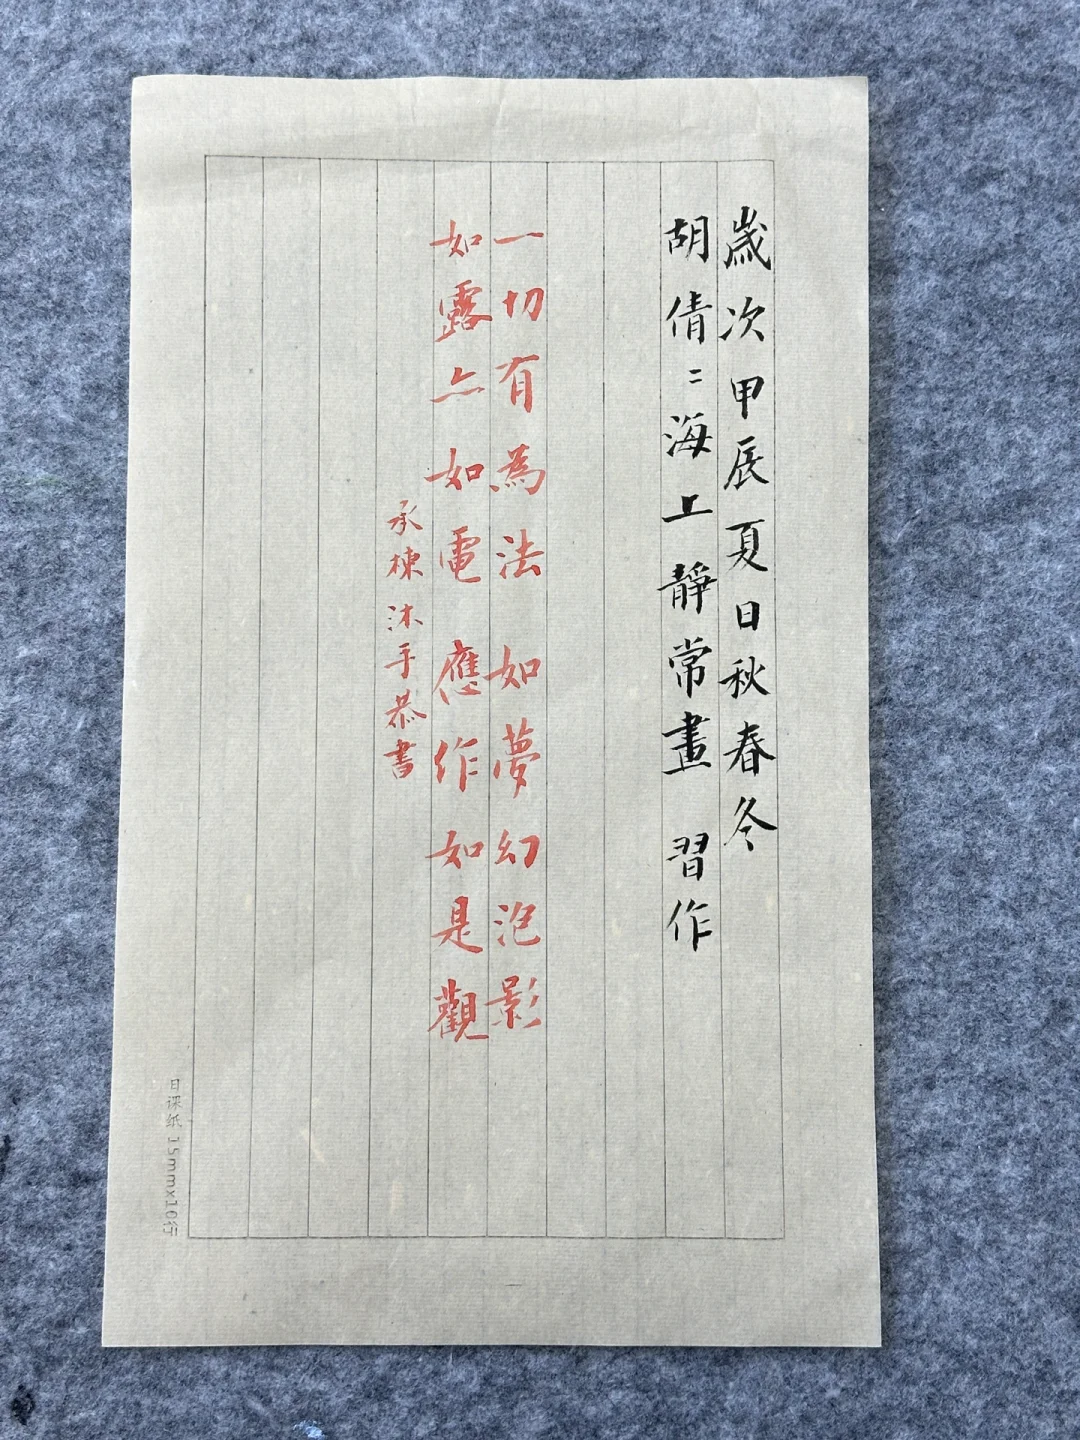 歲次甲辰夏日秋春冬
胡倩〻海上靜常畫 習作
一切有為法 如夢幻泡影
如露亦如電 應作如是觀
承棟沐手恭書
日课纸 15mmx10行